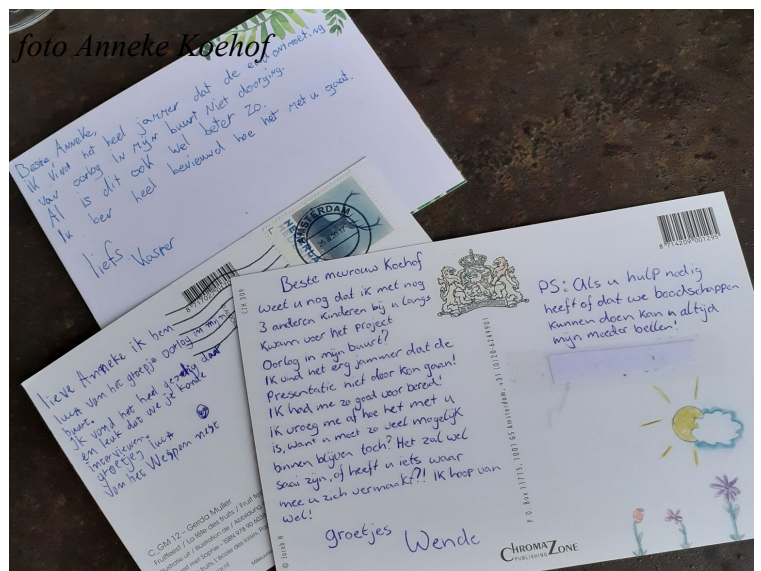 foto Anneke Koehof
Beste Anneke,
ik vind het heel jammer dat de eindontmoeting
van oorlog in mijn buurt niet doorging.
Al is dit ook wel beter zo.
Ik ben heel benieuwd hoe het met u gaat.
liefs Kasper
AMSTERDAM
lieve Anneke ik ben
luuk van het groepje oorlog in mijn
buurt.
ik vond het heel gezellig
en leuk dat we je konde
interviewen.
groetjes luuk
C_GM 12 - Gerda Muller
Fruitfeest / La fête des fruits / Fruit
CJH 309
8 714209 001295
Beste mevrouw Koehof
weet u nog dat ik met nog
3 anderen kinderen bij u langs
kwam voor het project
Oorlog in mijn buurt?
Ik vind het erg jammer dat de
Presentatie niet door kon gaan!
Ik had me zo goed voor bereid!
ik vroeg me af hoe het met u
is, want u moet zo veel mogelijk
binnen blijven toch? Het zal wel
saai zijn, of heeft u iets waar
mee u zich vermaakt?! Ik hoop van
wel!
groetjes Wende
PS: Als u hulp nodig
heeft of dat we boodschappen
kunnen doen kan u altijd
mijn moeder bellen!
P.O. Box 11715, 1001 GS Amsterdam, +31 (0)20-6249901
CHROMAZONE
PUBLISHING